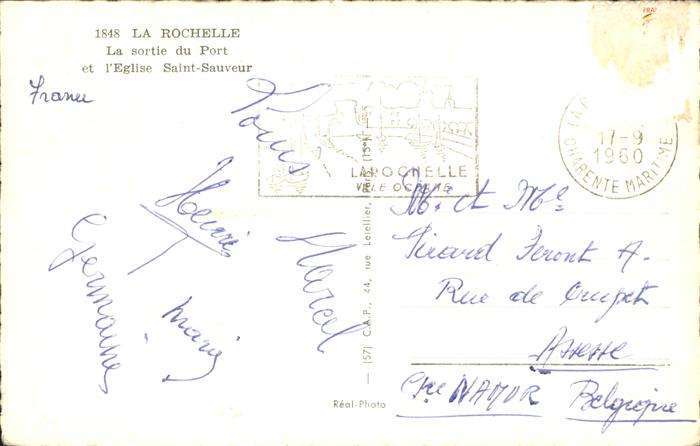 1848 LA ROCHELLE
La sortie du Port
et l'Eglise Saint-Sauveur
France
Louis
Henri
Marcel
Germaine
Marie
LA ROCHELLE
VILLE OCÉANE
17-9
1960
CHARENTE MARITIME
M. et Mme
Pirard Feront A.
Rue de
Assesse
Cté NAMUR Belgique
(57) C.A.P., 44, rue Letellier, Paris (15e)
Réal-Photo